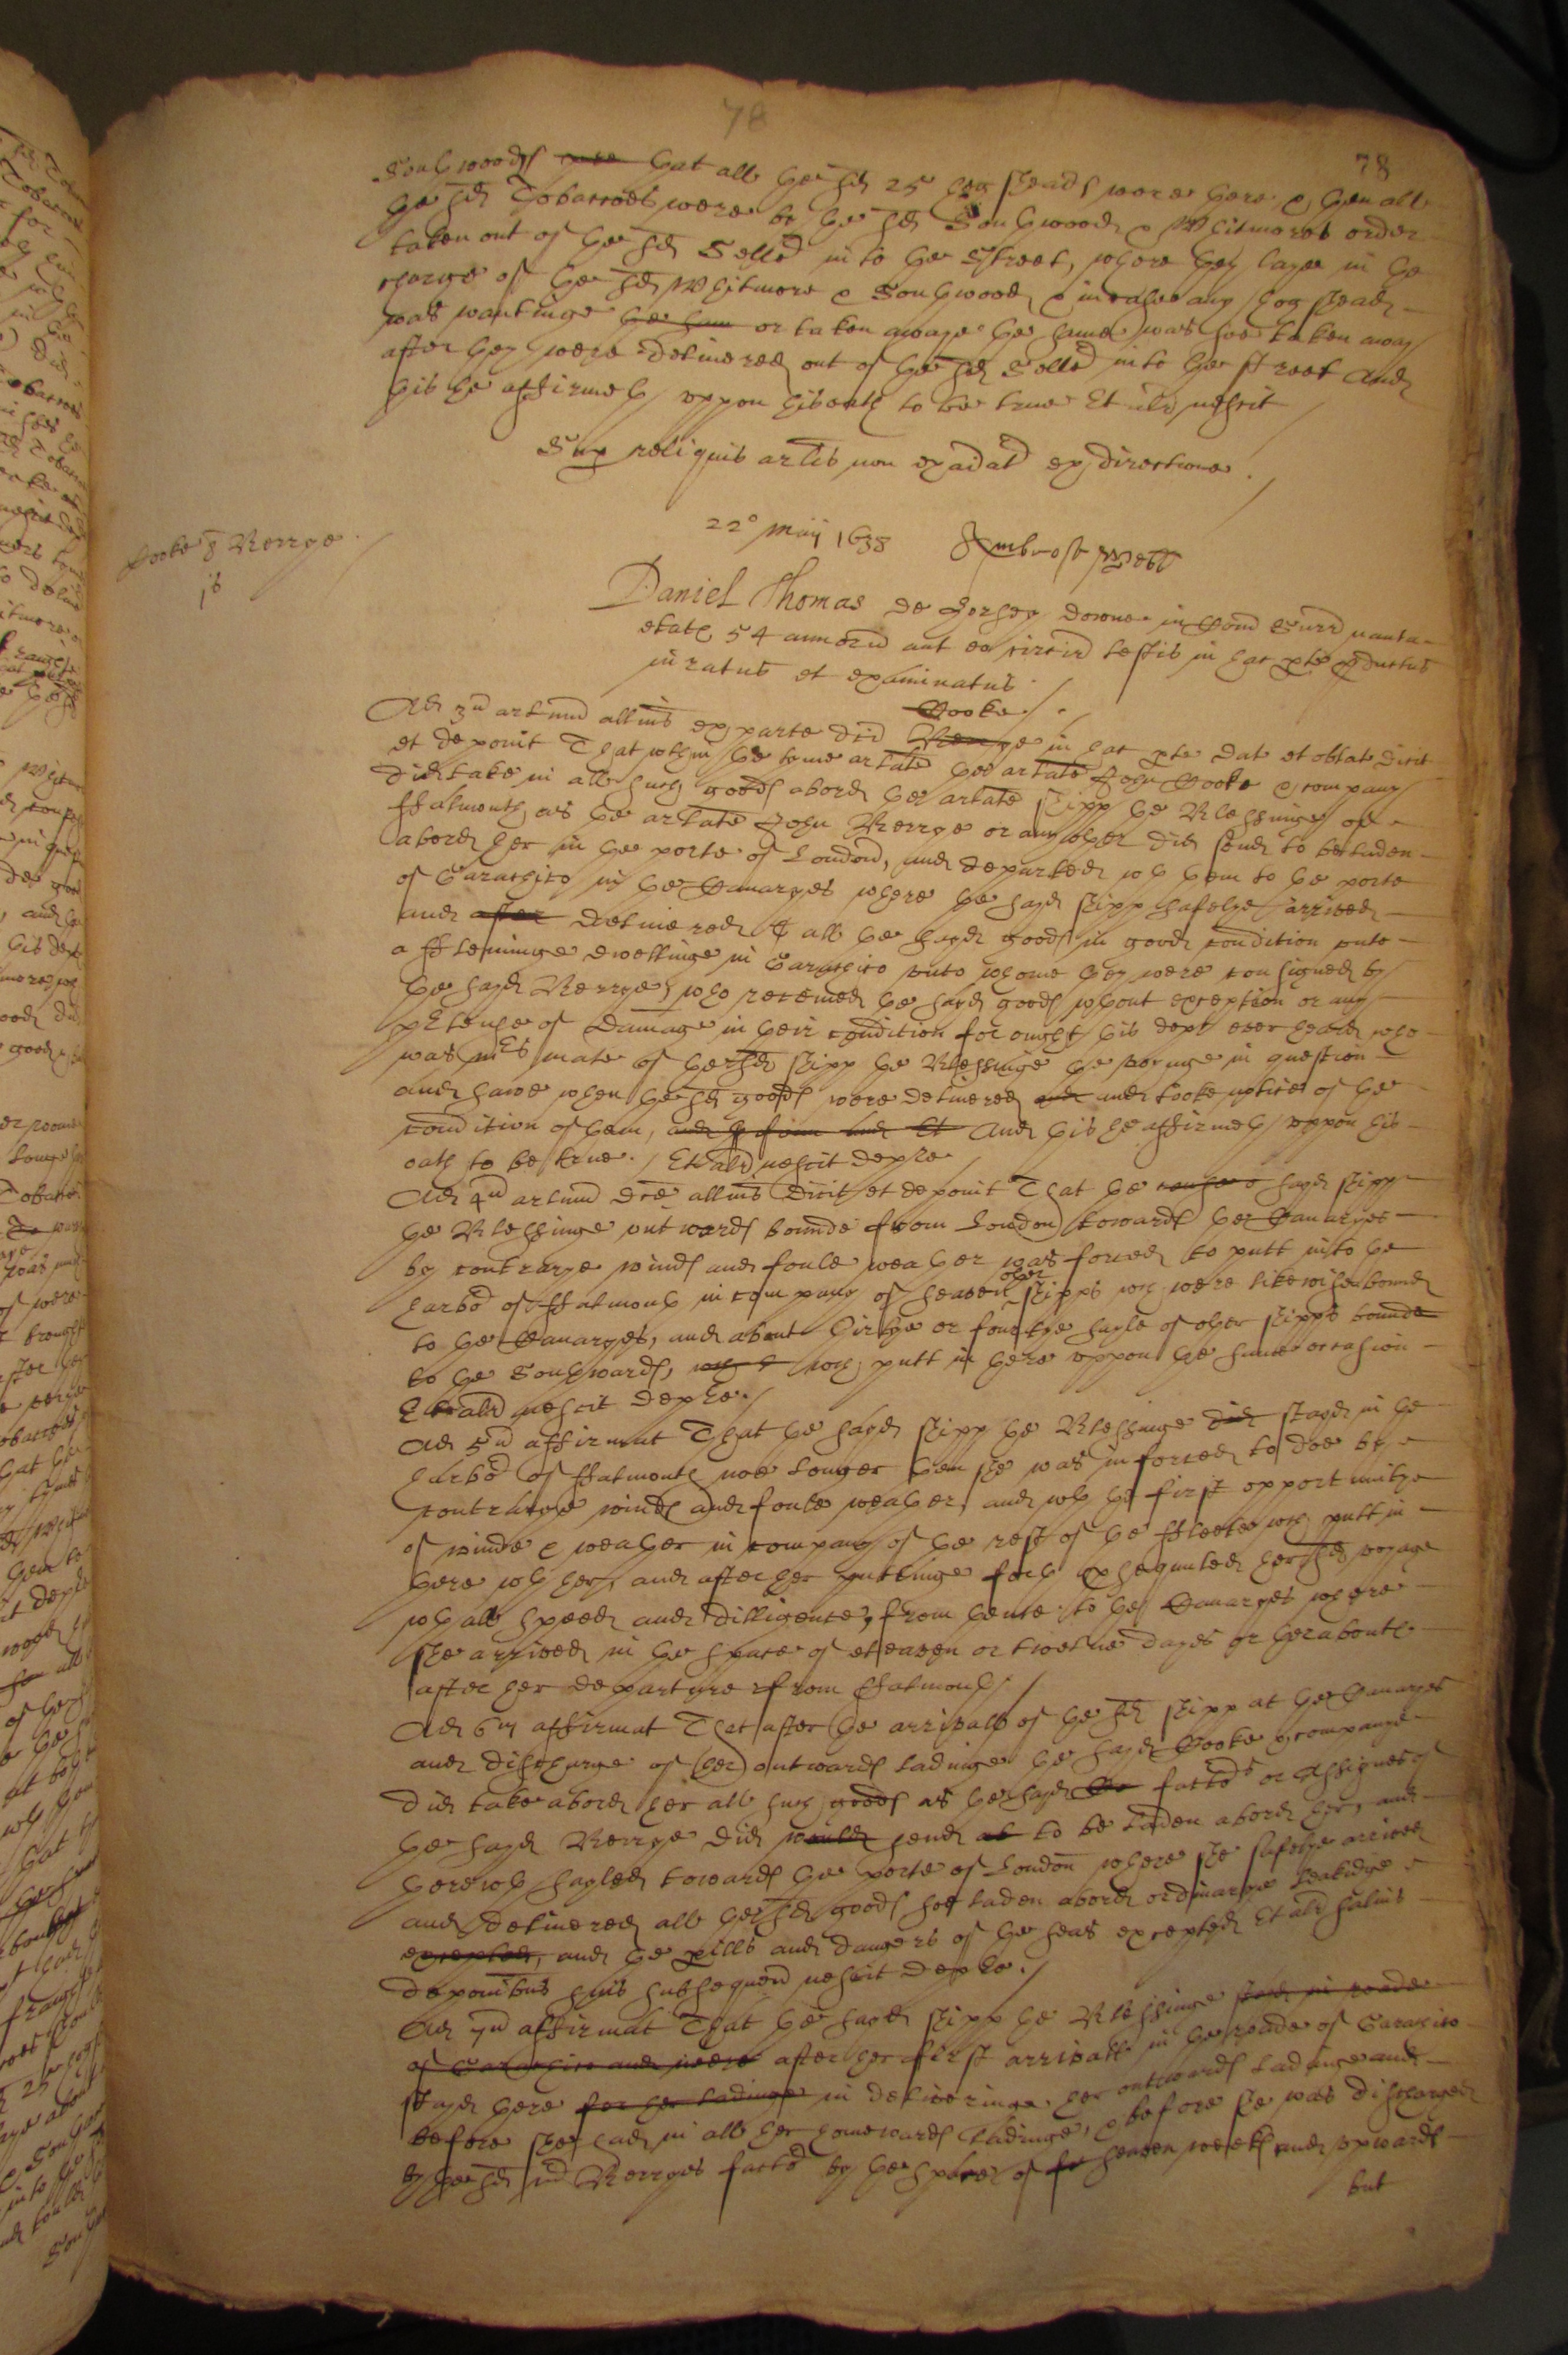 78
78
Southwoods that all the sd 25 hogsheads were there & then all
the sd Tobaccoes were by the sd Southwood & Whitmores order
taken out of the sd Sellr into the Street, where they laye in the
charge of the sd Whitmore & Southwood & in case any hogshead
was wantinge the same or taken awaye the same was soe taken away
after they were delivered out of the sd Sellr into the street And
this he affirmeth uppon his oath to be true Et alr nescit
Sup reliquis artlis non exaiat ex directione.
22o Maij 1638
Cooke &
Daniel Thomas de Jersey Downe in Com Surr nauta
etate 54 annoru aut eo circiter testis in hac pte pductus
iuratus et examinatus.
Ad 3u artlum allnis ex parte dci Cooke in hac pte dat et oblat dicit
et deponit That within the tyme artate the artate John Cooke & company
did take in all such goods abord the artate shipp the Blessinge of
ffalmouth, as the artate John Berrye or any other did send to be laden
abord her in the porte of London, and departed wth them to the porte
of Garachico in the Canaryes where the sayd shipp safelye arrived
and after delivered all the sayd goods in good condition unto
a ffleminge dwellinge in Garachico unto whome they were consigned by
the sayd Berrye, who receiued the sayd goods wthout exception or any
ptence of Damage in their condition for ought this dept ever heard who
was mrs mate of the sd shipp the Blessinge the voyage in question
and sawe when the sd goods were delivered and and tooke notice of the
condition of them, And this he affirmeth uppon his
oath to be true. Et alr nescit depre
Ad 4u artlum dce allnis dicit et deponit That the sayd shipp
the Blessinge outwards bounde from London towards the Canaryes
by contrarye winds and foule weather was forced to putt into the
harbor of ffalmouth in company of seaven other shipps wch were likewise bound
to the Canaryes, and about thirtye or fourtye sayle of other shipps bounde
to the Southwards, wch putt in there uppon the same occasion
Et alr nescit depre.
Ad 5u affirmat That the sayd shipp the Blessinge did stayd in the
harbor of ffalmouth noe longer then she was inforced to doe by
contrarye winds and foule weather, and wth the first opportunitye
of winde & weather in company of the rest of the ffleete wch putt in
there wth her, and after her puttinge forth psequuted her sd voyage
wth all speed and dilligence, from thence to the Canaryes where
she arrived in the space of eleaven or twelve dayes or therabouts
after her departure from ffalmouth
Ad 6u affirmat That after the arrivall of the sd shipp at the Canaryes
and discharge of her outwards ladinge the sayd Cooke & companye
did take abord her all such goods as the sayd Co factors or Assignes of
the sayd Berrye did would send to be laden abord her, and
therewth sayled towards the porte of London where she safelye arrived
and delivered all the sd goods soe laden abord ordinarye leakidge
excepted, and the pills and dangers of the seas excepted Et alr salvis
deponibus suis subsequen nescit depre.
Ad 7u affirmat That the sayd shipp the Blessinge stayd in roade
of Garachico and were after her first arrivall in the roade of Garachico
stayd there for her ladinge in deliveringe her outwards ladinge and
before she had in all her homewards ladinge, & before she was discharged
by the sd Berryes factor by the space of seaven weeks and upwards
but